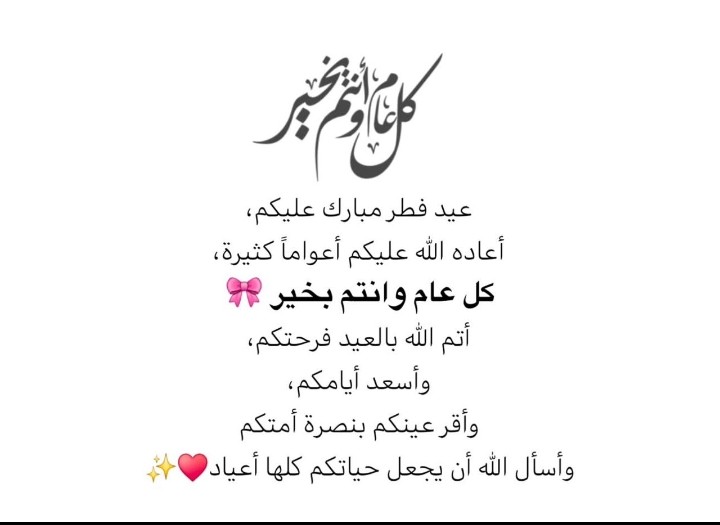 كل عام وأنتم بخير
عيد فطر مبارك عليكم،
أعاده الله عليكم أعواماً كثيرة،
كل عام وانتم بخير 🎀
أتم الله بالعيد فرحتكم،
وأسعد أيامكم،
وأقر عينكم بنصرة أمتكم
وأسأل الله أن يجعل حياتكم كلها أعياد❤️✨